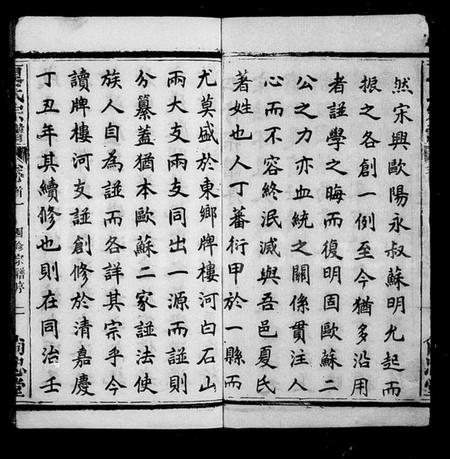 然宋興歐陽永叔蘇明允起而
振之各創一例至今猶多沿用
者譜學之晦而復明固歐蘇二
公之力亦血統之關係貫注人
心而不容終泯滅與吾邑夏氏
著姓也人丁蕃衍甲於一縣而
尤莫盛於東鄉牌樓河白石山
兩大支兩支同出一源而譜則
分纂蓋猶本歐蘇二家譜法使
族人自為譜而各詳其宗乎今
讀牌樓河支譜創修於清嘉慶
丁丑年其續修也則在同治壬
夏氏宗譜 卷首一